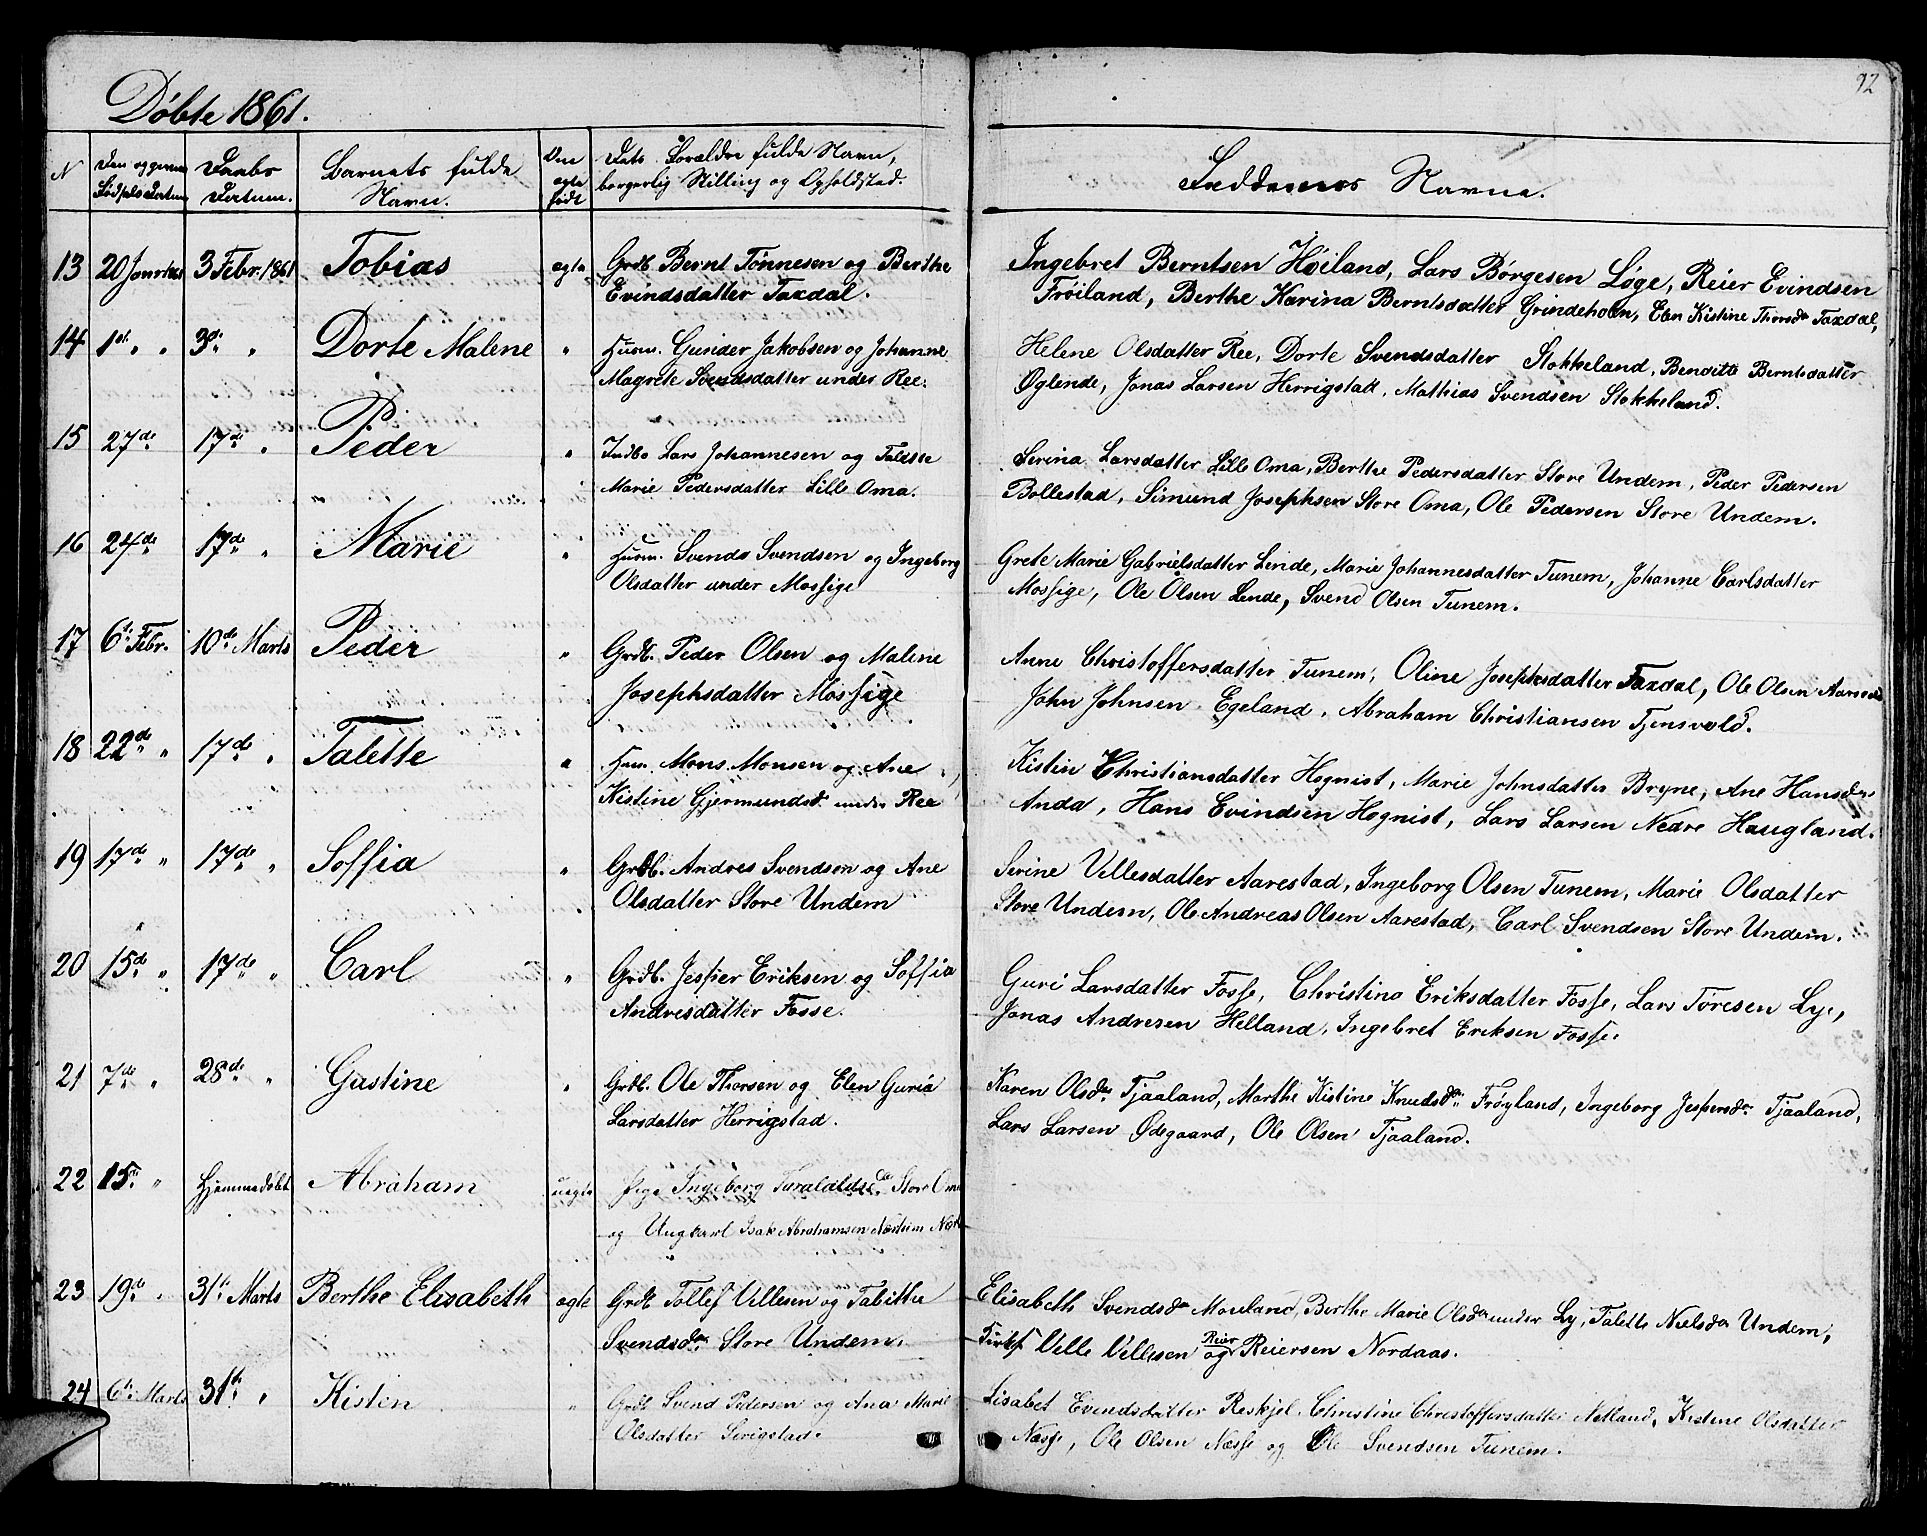 92
Döbte 1861.
N
Den og gevne Födsels Datum
Daabs Datum.
Barnets fulde Navn.
Om ægte født
Dets Forældre fulde Navn,
borgerlig Stilling og Opholdsted.
Faddernes Navne.
13 20 Januar 3 Febr. 1861 Tobias ægte Grdb. Bernt Tönnesen og Berthe
Evindsdatter Taxdal.
Ingebret Berntsen Höiland, Lars Börgesen Löge, Reier Evindsen
Fröiland, Berthe Karina Berntsdatter Grindeholen, Elen Kistine Thorsdr Taxdal,
14 1st " " 3die " Dorte Malene " Husm. Gunder Jakobsen og Johanne
Magrete Svendsdatter under Ree.
Helene Olsdatter Ree, Dorte Svendsdatter Stokkeland, Benditte Berntsdatter
Öglende, Jonas Larsen Herrigstad, Mathias Svendsen Stokkeland.
15 27de 17de " Peder " Indbo Lars Johannesen og Talette
Marie Pedersdatter Lille Oma.
Serina Larsdatter Lille Oma, Berthe Pedersdatter Store Undem, Peder Pedersen
Bollestad, Simund Josephsen Store Oma, Ole Pedersen Store Undem.
16 24de 17de " Marie " Husm. Svend Svendsen og Ingeborg
Olsdatter under Mossige
Grete Marie Gabrielsdatter Linde, Marie Johannesdatter Tunem, Johanne Carlsdatter
Mossige, Ole Olsen Linde, Svend Olsen Tunem.
17 6te Febr. 10de Marts Peder " Grdb. Peder Olsen og Malene
Josephsdatter Mossige
Anne Christoffersdatter Tunem, Oline Josephsdatter Taxdal, Ole Olsen
John Johnsen Egeland, Abraham Christiansen Tjensvold.
18 22de " 17de " Talette " Husm. Mons Monsen og Ane
Kistine Gjermundsd. under Ree
Kistin Christiansdatter Hognist, Marie Johnsdatter Bryne, Ane Hansdr
Anda, Hans Evindsen Hognist, Lars Larsen Nedre Haugland.
19 17de " 17de " Soffia " Grdb. Andres Svendsen og Ane
Olsdatter Store Undem
Serine Villesdatter Aarestad, Ingeborg Olsen Tunem, Marie Olsdatter
Store Undem, Ole Andreas Olsen Aarestad, Carl Svendsen Store Undem.
20 15de " 17de " Carl " Grdb. Jesper Eriksen og Soffia
Andresdatter Fosse.
Guri Larsdatter Fosse, Christina Eriksdatter Fosse, Lars Töresen Ly,
Jonas Andresen Helland, Ingebret Eriksen Fosse.
21 7de " 28de " Gustine " Grdb. Ole Thorsen og Elen Guria
Larsdatter Herrigstad.
Karen Olsdr Tjaaland, Marthe Kistine Knudsdr Fröyland, Ingeborg Jespersdr Tjaaland,
Lars Larsen Ödegaard, Ole Olsen Tjaaland.
22 15de " Hjemmedöbt Abraham uægte Pige Ingeborg Taraldsdr Store Oma
og Ungkarl Isak Abrahamsen
23 19de " 31te Marts Berthe Elisabeth ægte Grdb. Tollef Villesen og Tabitha
Svendsdr Store Undem.
Elisabeth Svendsdr Mauland, Berthe Marie Olsdr under Ly, Talette Nielsdr Undem,
Ville Villesen og Reier Reiersen Nordaas.
24 6te Marts 31te " Kisten " Grdb. Svend Pedersen og Ana Marie
Olsdatter Serigstad.
Lisabet Evendsdatter Reskjel, Christine Christoffersdatter Netland, Kistine Olsdatter
Næsse, Ole Olsen Næsse og Ole Svendsen Tunem.